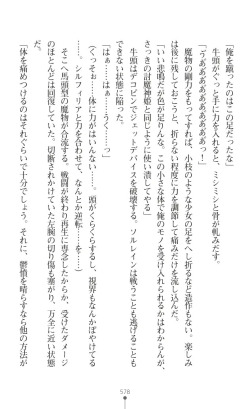 「俺を蹴ったのはこの足だったな」
　牛頭がぐっと手に力を入れると、ミシミシと骨が軋みだす。
「うぁあああああああああっ！」
　魔物の剛力をもってすれば、小枝のような少女の足をへし折るなど造作もない。楽しみ
は後に残しておこうと、折らない程度に力を調節して痛みだけを流し込んだ。
「いい悲鳴だが色が足りんな。この小さな体で俺のモノを受け入れられるかはわからんが、
さっきの討魔神姫のように使い潰してやる」
　牛頭はデコピンでジェットデバイスを破壊する。ソルレインは戦うことも逃げることも
できない状態に陥った。
「はぁ……はぁ……うく……っ」
（くっそぉ……体に力がはいんない……。頭がくらくらする、視界もなんかぼやけてる
し……。シルフィリアと力を合わせて、なんとか逆転……を……）
　そこへ馬頭型の魔物が合流する。戦闘が終わり再生に専念したからか、受けたダメージ
のほとんどは回復していた。切断されかけていた左腕の切り傷も塞がり、万全に近い状態
だ。
「体を痛めつけるのはそれぐらいで十分でしょう。それに、鬱憤を晴らすなら他の方法が
578